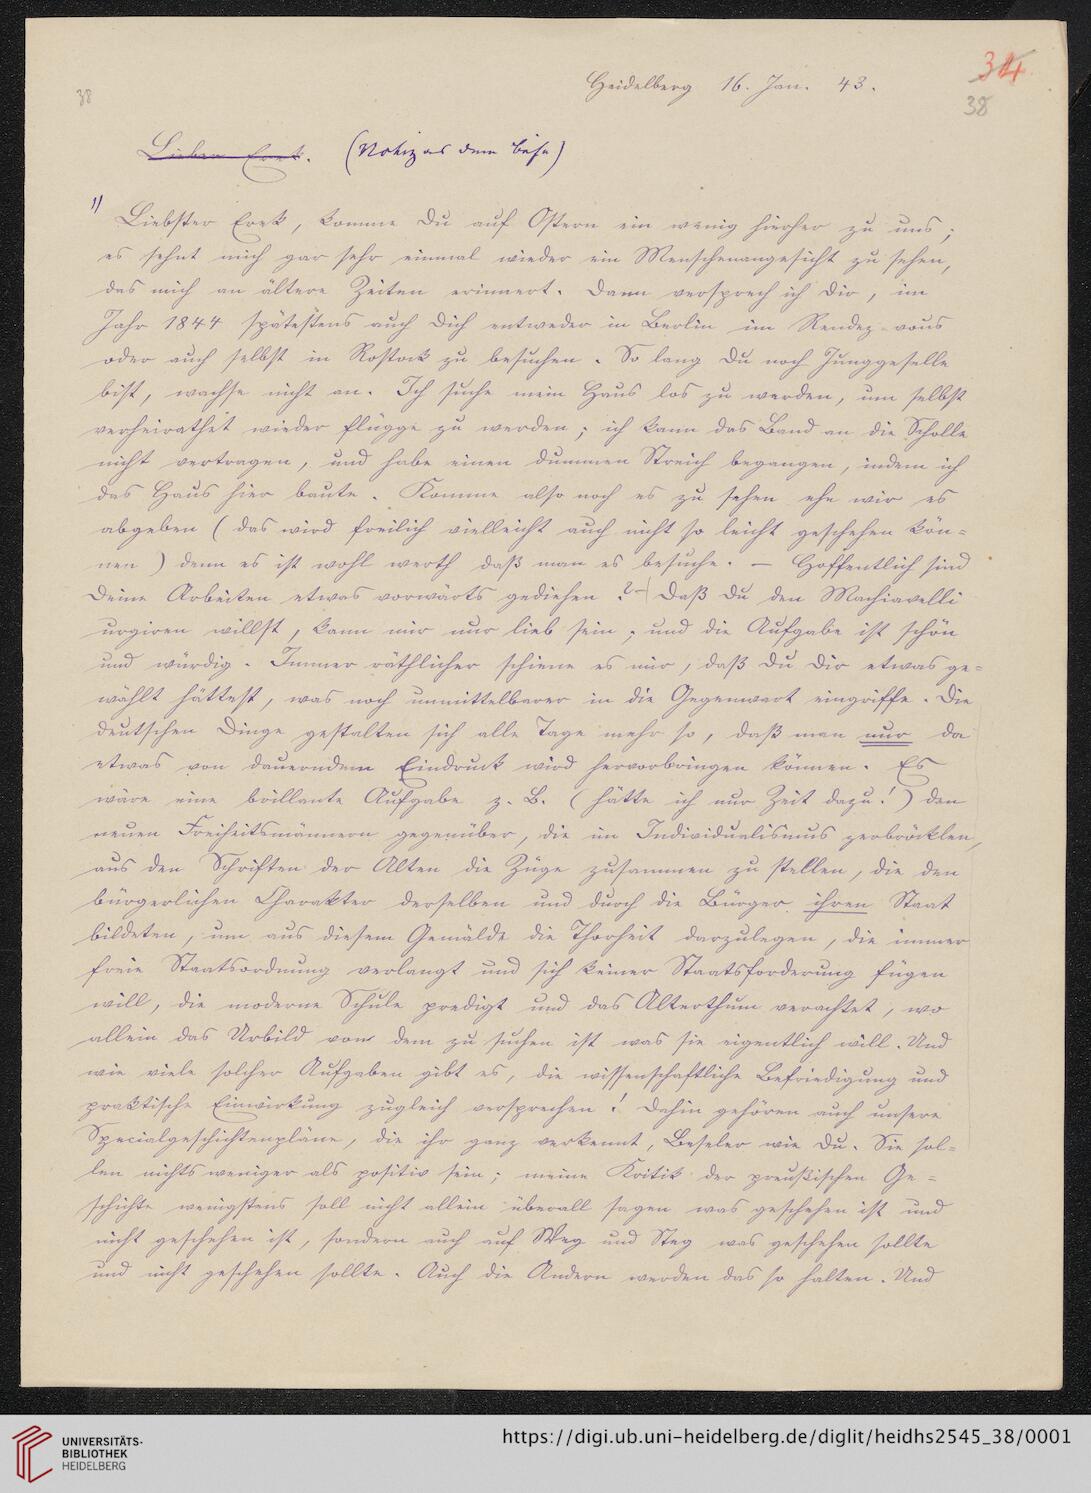 34
38
38
Heidelberg 16. Jan. 43.
Lieber Emil. (Notiz aus dem Briefe)
1)
Liebster Freund, komme Du auf Ostern ein wenig hierher zu uns;
es sehnt mich gar sehr einmal wieder ein Menschenangesicht zu sehen,
das mich an ältere Zeiten erinnert. Dann versprech ich Dir, im
Jahr 1844 spätestens auch Dich entweder in Berlin im Rendez-vous
oder auch selbst in Rostock zu besuchen. So lang Du noch Junggeselle
bist, wachse nicht an. Ich suche mein Haus los zu werden, um selbst
verheirathet wieder flügge zu werden; ich kann das Band an die Scholle
nicht vertragen, und habe einen dummen Streich begangen, indem ich
das Haus hier baute. Komme also noch es zu sehen ehe wir es
abgeben (das wird freilich vielleicht auch nicht so leicht geschehen kön-
nen) denn es ist wohl werth daß man es besuche. — Hoffentlich sind
Deine Arbeiten etwas vorwärts gediehen? — Daß Du den Machiavelli
urgiren willst, kann mir nur lieb sein; und die Aufgabe ist schön
und würdig. Immer räthlicher schiene es mir, daß Du Dir etwas ge-
wählt hättest, was noch unmittelbarer in die Gegenwart eingriffe. Die
deutschen Dinge gestalten sich alle Tage mehr so, daß man nur da
etwas von dauerndem Eindruck wird hervorbringen können. Es
wäre eine brillante Aufgabe z. B. (hätte ich nur Zeit dazu!) den
neuen Freiheitsmännern gegenüber, die im Individualismus zerbröcklen,
aus den Schriften der Alten die Züge zusammen zu stellen, die den
bürgerlichen Charakter derselben und durch die Bürger ihren Staat
bildeten, um aus diesem Gemälde die Thorheit darzulegen, die immer
freie Staatsordnung verlangt und sich keiner Staatsforderung fügen
will, die moderne Schule predigt und das Alterthum verachtet, wo
allein das Urbild von dem zu suchen ist was sie eigentlich will. Und
wie viele solcher Aufgaben gibt es, die wissenschaftliche Befriedigung und
praktische Einwirkung zugleich versprechen! Dahin gehören auch unsere
Specialgeschichtenpläne, die ihr ganz verkennt, Beseler wie Du. Sie sol-
len nichts weniger als positiv sein; meine Kritik der preußischen Ge-
schichte wenigstens soll nicht allein überall sagen was geschehen ist und
nicht geschehen ist, sondern auch auf Weg und Steg was geschehen sollte
und nicht geschehen sollte. Auch die Andern werden das so halten. Und
UNIVERSITÄTS-
BIBLIOTHEK
HEIDELBERG
https://digi.ub.uni-heidelberg.de/diglit/heidhs2545_38/0001